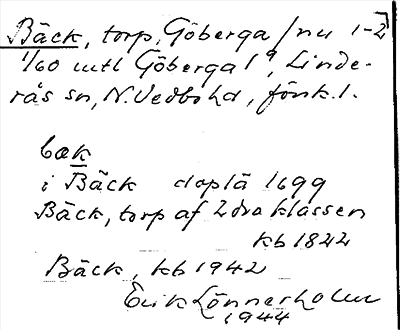 Bäck, torp, Göberga /nu 1-2
1/60 mtl Göberga 1ª, Linde-
rås sn, N. Vedbo hd, Jönk. l.
bæk
i Bäck doplä 1699
Bäck, torp af 2dra klassen
kb 1822
Bäck, kb 1942
Erik Lönnerholm
1944